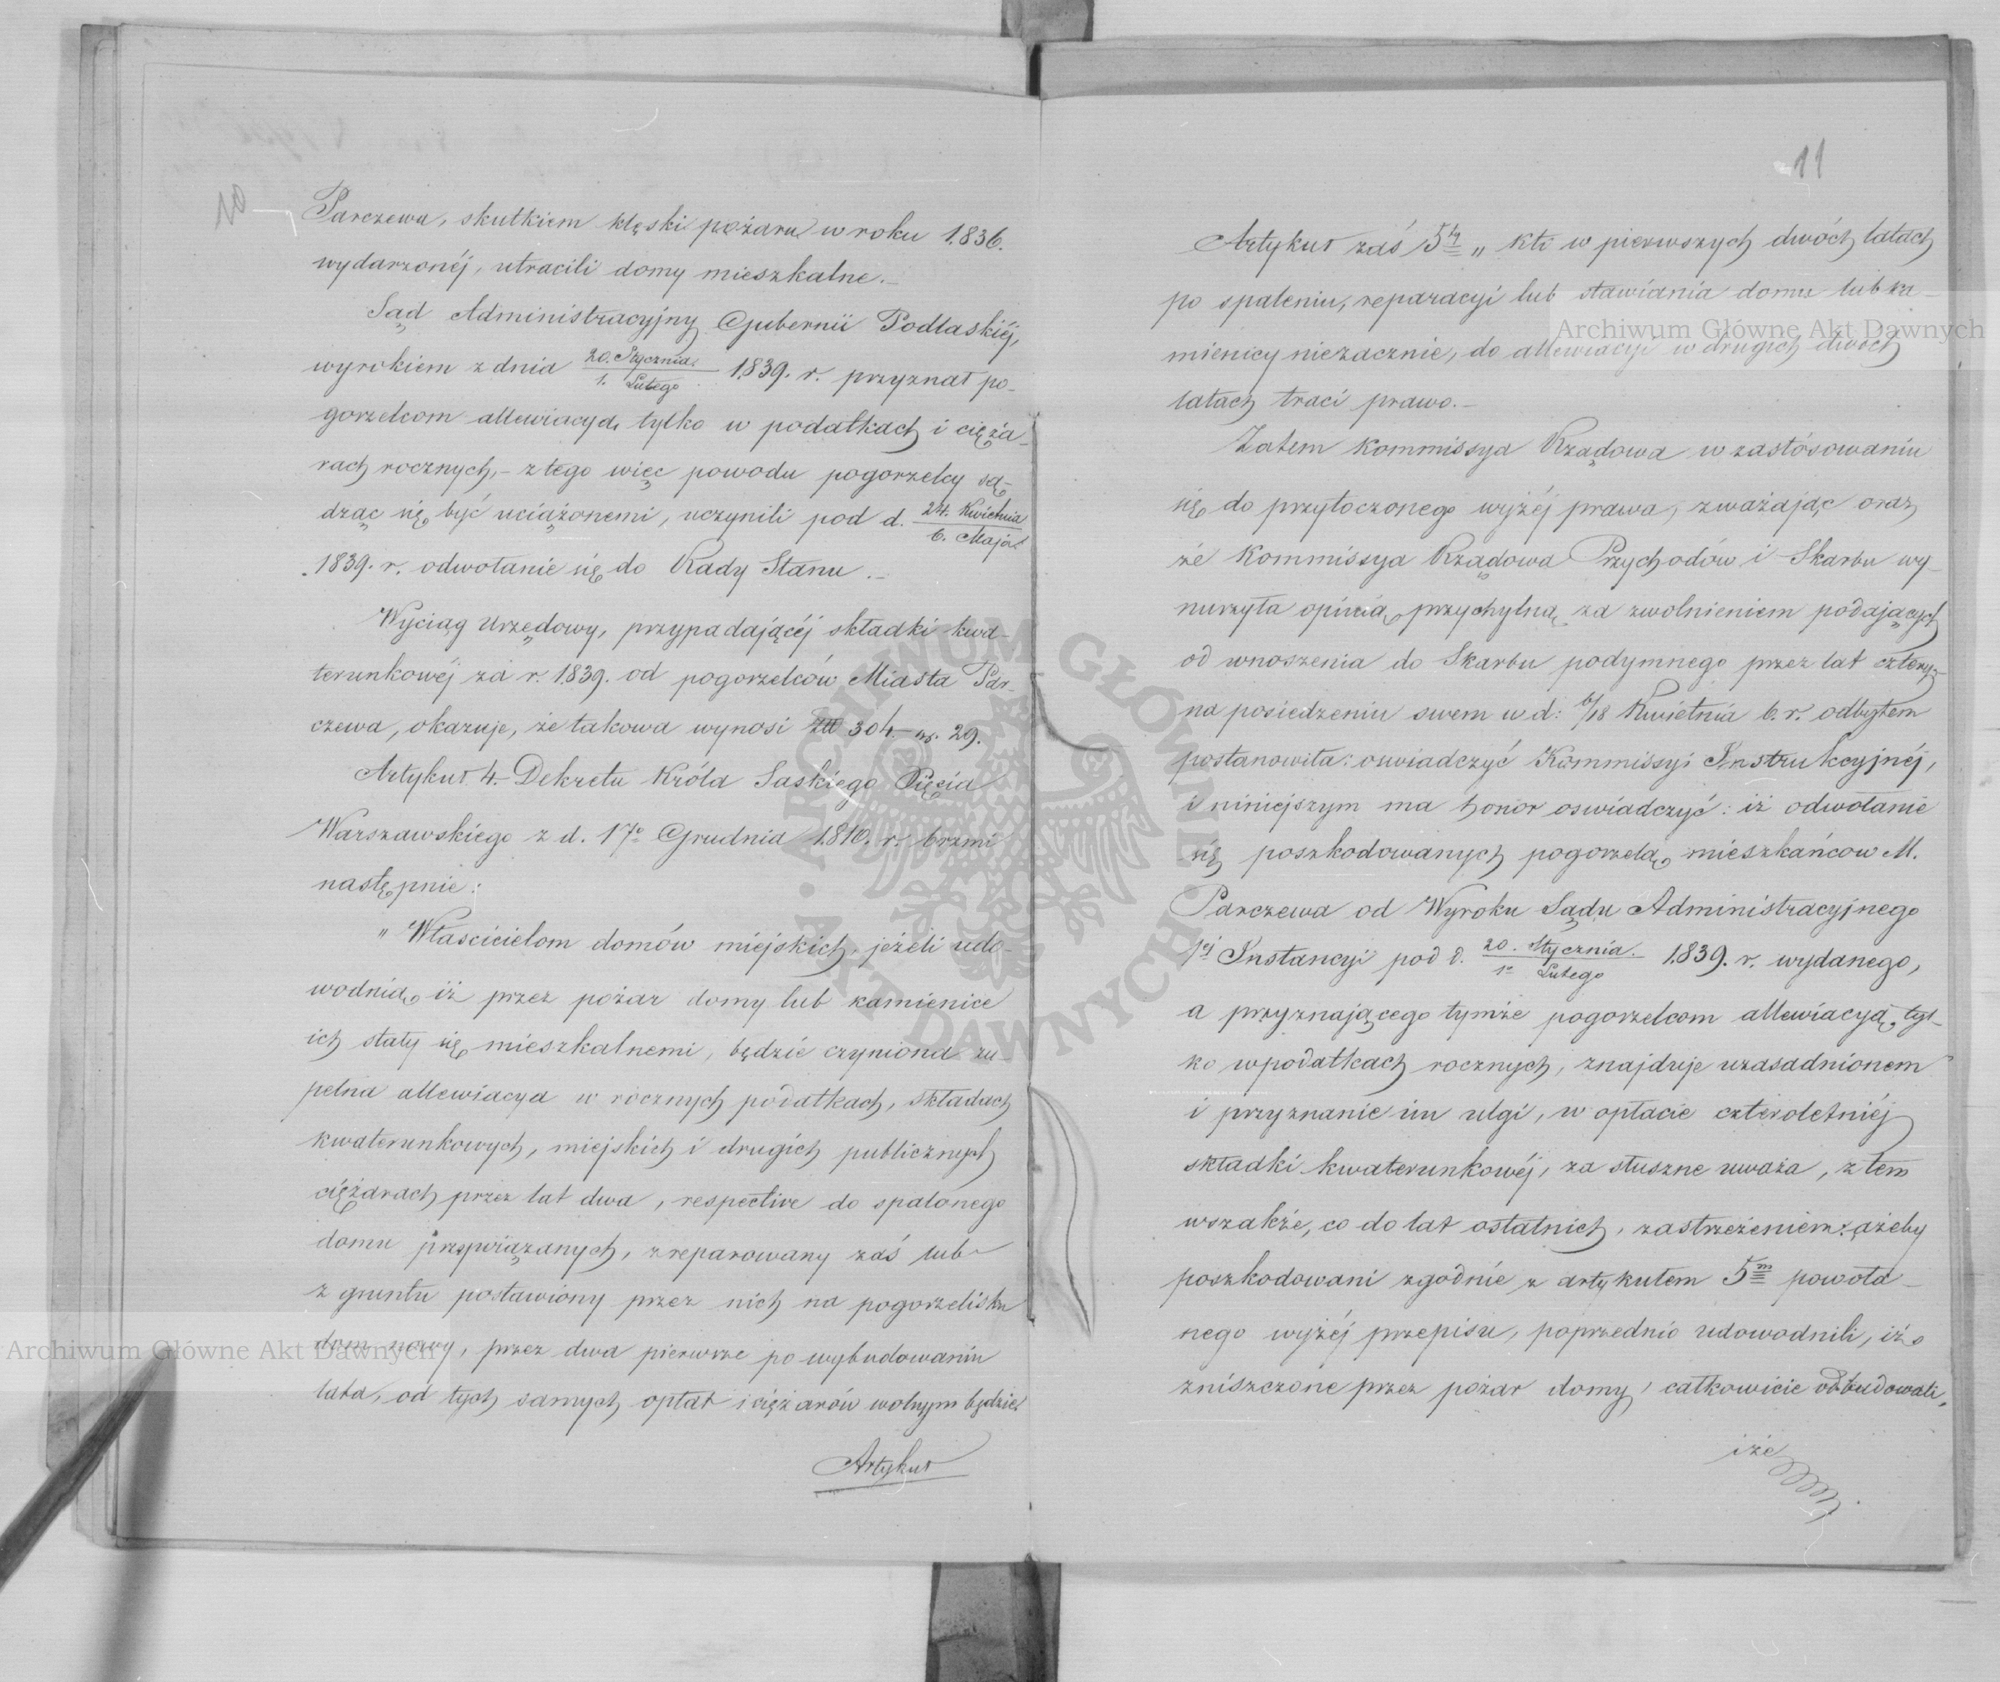 Parczewa, skutkiem klęski pożaru w roku 1836.
wydarzonéj, utracili domy mieszkalne.—
Sąd Administracyjny Gubernii Podlaskiéj,
wyrokiem z dnia 20. Stycznia / 1. Lutego 1839. r. przyznał po-
gorzelcom allewiacyą tylko w podatkach i cięża-
rach rocznych,– z tego więc powodu pogorzelcy są-
dząc się być uciążonemi, uczynili pod d. 24. Kwietnia / 6. Maja
1839. r. odwołanie się do Rady Stanu.—
Wyciąg urzędowy, przypadającéj składki kwa-
terunkowéj za r. 1839. od pogorzelców Miasta Par-
czewa, okazuje, że takowa wynosi 304 gr. 29.
Artykuł 4. Dekretu Króla Saskiego Xięcia
Warszawskiego z d. 17o Grudnia 1810. r. brzmi
następnie:
„Włascicielom domów miejskich, jeżeli udo-
wodnią, iż przez pożar domy lub kamienice
ich stały się mieszkalnemi, będzie czyniona zu
pełna allewiacya w rocznych podatkach, składach
kwaterunkowych, miejskich i drugich publicznych
ciężarach przez lat dwa, respective do spalonego
domu przywiązanych, zreparowany zaś lub
z gruntu postawiony przez nich na pogorzelisku
dom nowy, przez dwa pierwsze po wybudowaniu
lata, od tych samych opłat i ciężarów wolnym będzie
Artykuł
11
Artykuł zaś 5ty „kto w pierwszych dwóch latach
po spaleniu, reparacyi lub stawiania domu lub ka-
mienicy niezacznie, do allewiacyi w drugich dwóch
latach traci prawo.—
Zatem Kommissya Rządowa w zastósowaniu
się do przytoczonego wyżéj prawa, zważając oraz,
że Kommissya Rządowa Przychodów i Skarbu wy-
nurzyła opinią przychylną za zwolnieniem podających
od wnoszenia do Skarbu podymnego przez lat cztery,–
na posiedzeniu swem w d: 6/18 Kwietnia b. r. odbytem
postanowiła: oswiadczyć Kommissyi Instrukcyjnéj,
i niniejszym ma honor oswiadczyć: iż odwołanie
się poszkodowanych pogorzelą mieszkańcow M.
Parczewa od Wyroku Sądu Administracyjnego
1ej Instancyi pod d. 20. Stycznia. / 1o Lutego 1839. r. wydanego,
a przyznającego tymże pogorzelcom allewiacyą, tyl-
ko w podatkach rocznych, znajduje uzasadnionem
i przyznanie im ulgi, w opłacie czteroletniéj
składki kwaterunkowéj, za słuszne uważa, z tem
wszakże, co do lat ostatnich, zastrzeżeniem: ażeby
poszkodowani zgodnie z artykułem 5m powoła-
nego wyżéj przepisu, poprzednio udowodnili, iż
zniszczone przez pożar domy, całkowicie odbudowali,
iże
Archiwum Główne Akt Dawnych
Archiwum Główne Akt Dawnych
ARCHIWUM GŁÓWNE AKT DAWNYCH